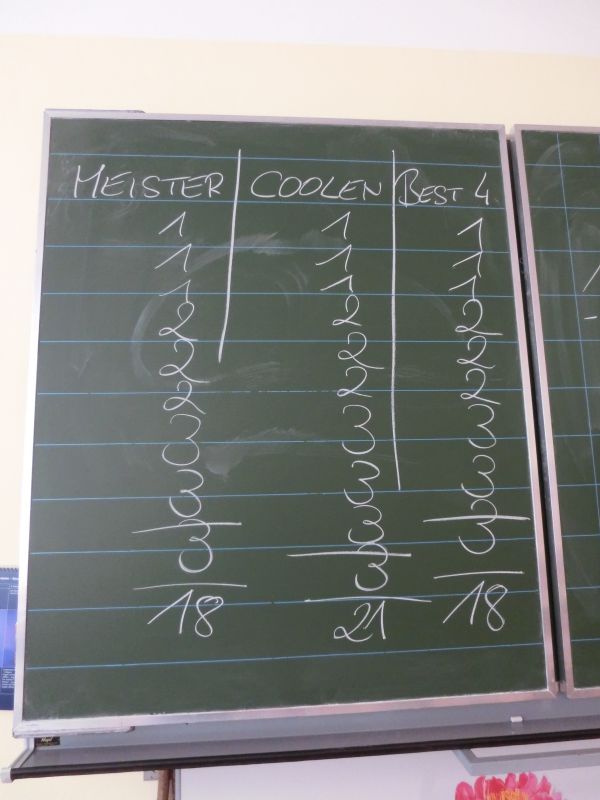 MEISTER COOLEN BEST 4
1 1 1
1 1 1
1 1 1
2 2 2
2 2 2
2 2 2
3 3 3
3 3 3
3 3 3
3
18 21 18